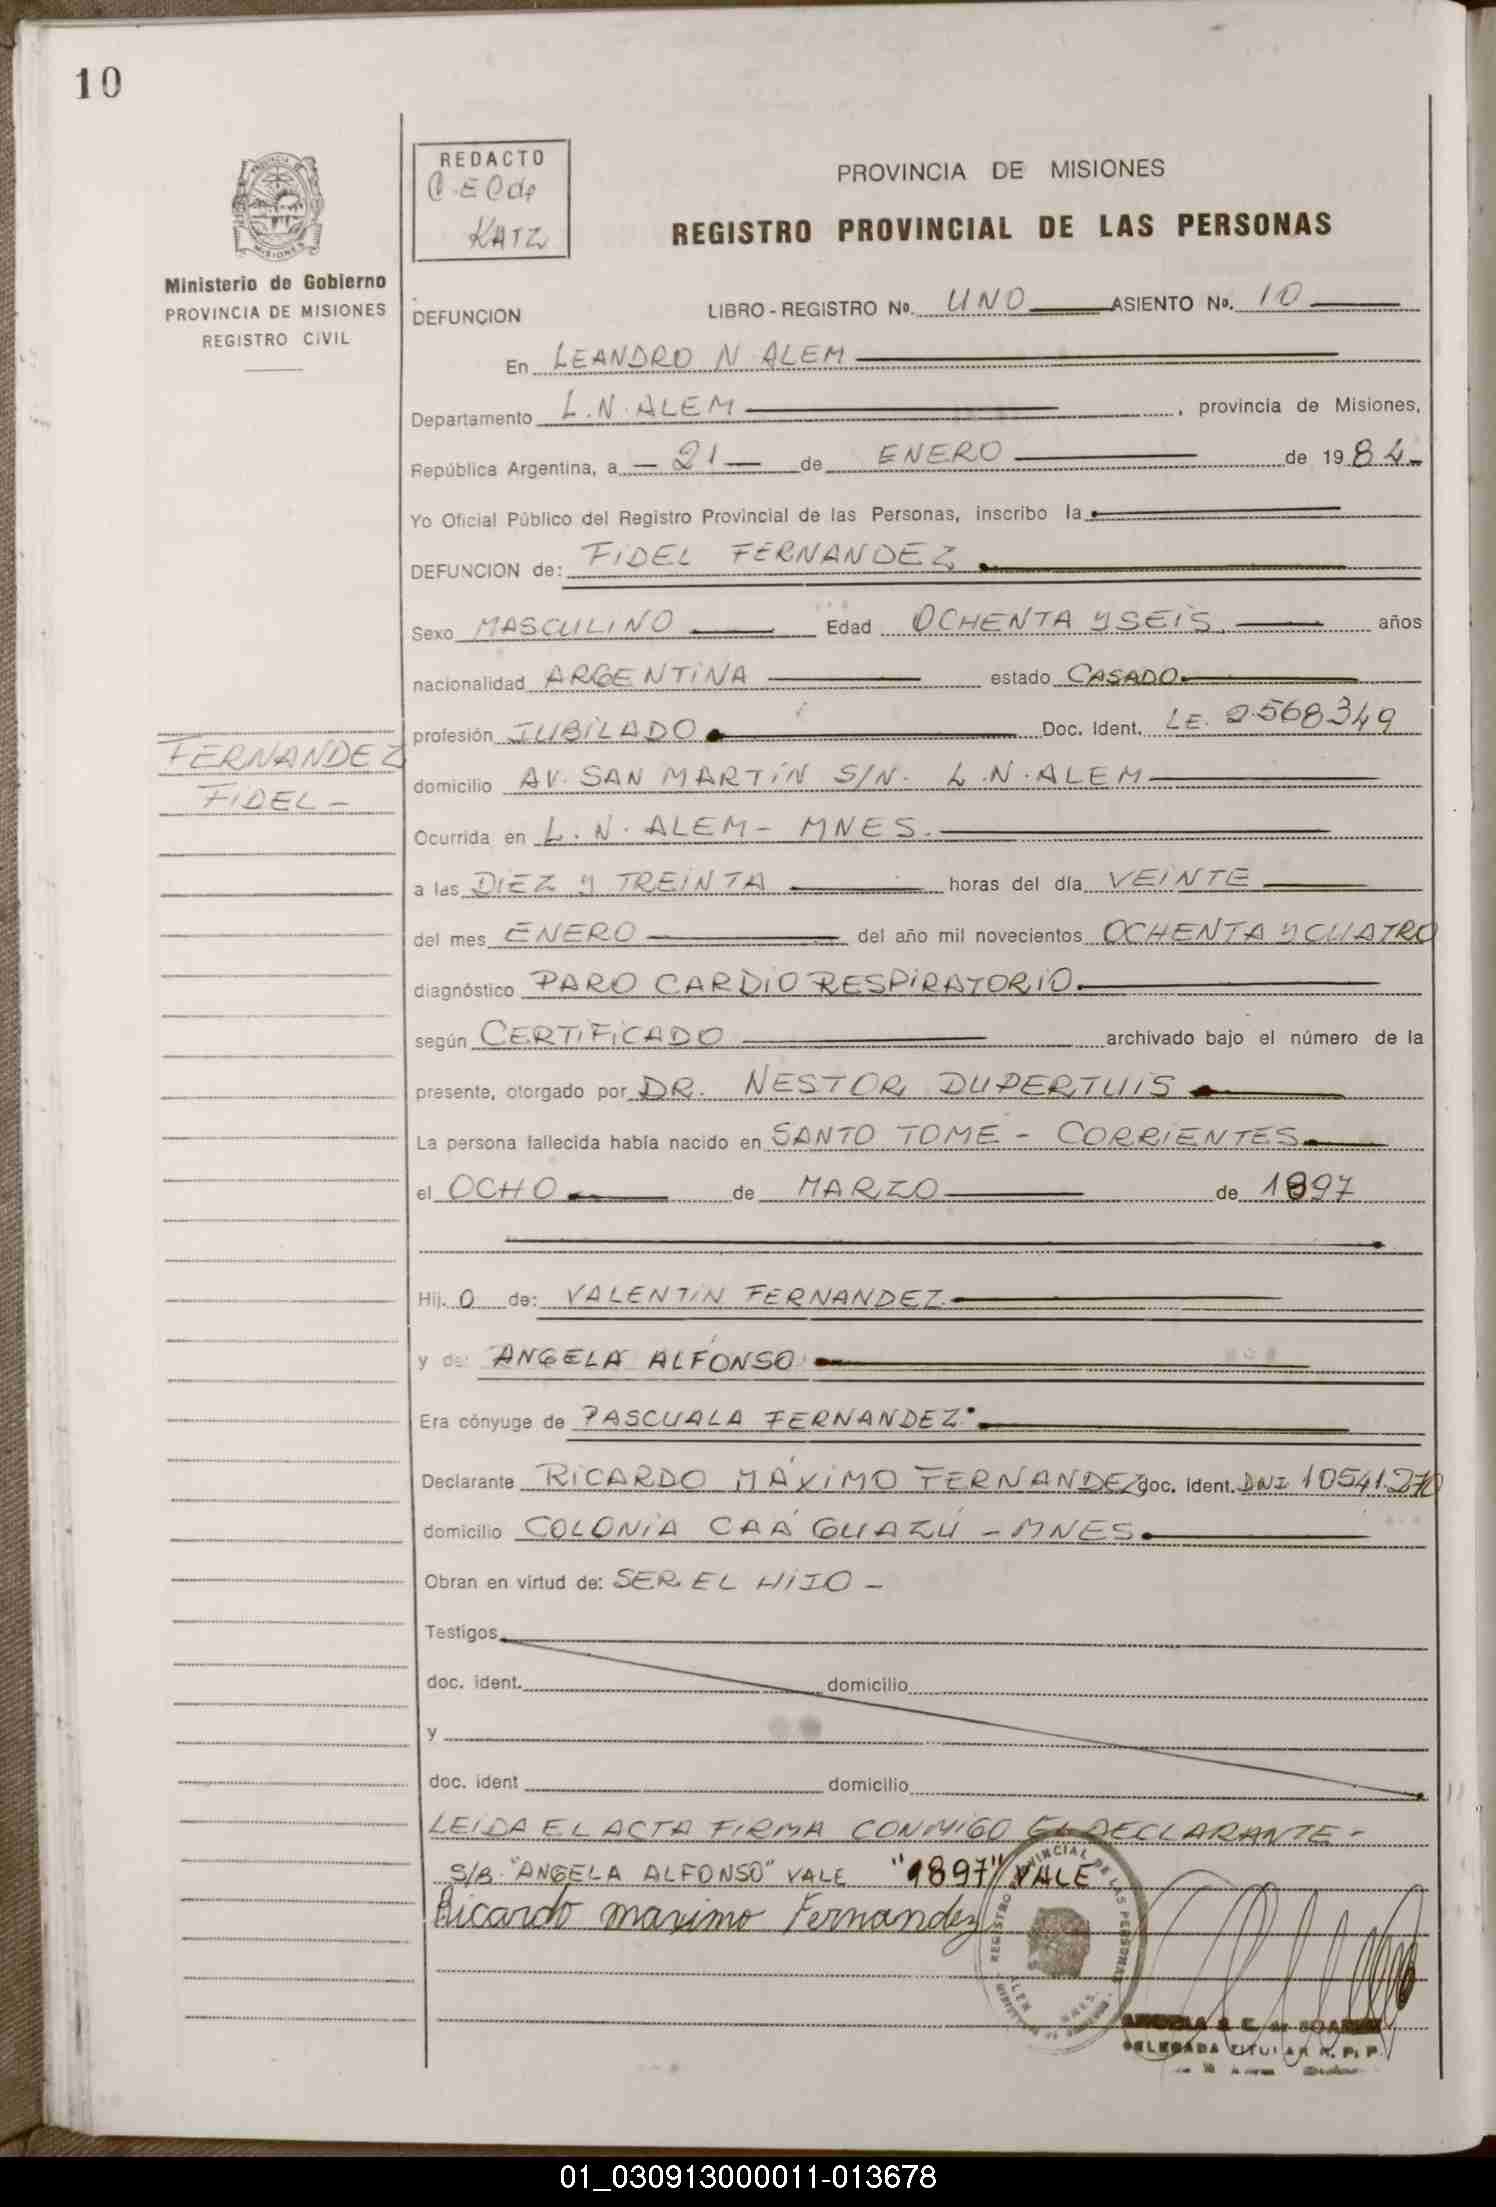 10
REDACTO
KATZ
PROVINCIA DE MISIONES
REGISTRO PROVINCIAL DE LAS PERSONAS
Ministerio de Gobierno
PROVINCIA DE MISIONES
REGISTRO CIVIL
DEFUNCION LIBRO - REGISTRO Nº. UNO ASIENTO Nº. 10
En LEANDRO N ALEM
Departamento L.N.ALEM, provincia de Misiones,
República Argentina, a - 21 - de ENERO de 1984-
Yo Oficial Público del Registro Provincial de las Personas, inscribo la
DEFUNCION de: FIDEL FERNANDEZ
Sexo MASCULINO Edad OCHENTA Y SEIS años
nacionalidad ARGENTINA estado CASADO
profesión JUBILADO Doc. Ident. LE. 2.568349
FERNANDEZ
FIDEL -
domicilio AV. SAN MARTIN S/N. L.N.ALEM
Ocurrida en L.N.ALEM - MNES.
a las DIEZ Y TREINTA horas del día VEINTE
del mes ENERO del año mil novecientos OCHENTA Y CUATRO
diagnóstico PARO CARDIO RESPIRATORIO
según CERTIFICADO archivado bajo el número de la
presente, otorgado por DR. NESTOR DUPERTUIS
La persona fallecida había nacido en SANTO TOME - CORRIENTES
el OCHO de MARZO de 1897
Hij. O de: VALENTIN FERNANDEZ
y de: ANGELA ALFONSO
Era cónyuge de PASCUALA FERNANDEZ
Declarante RICARDO MÁXIMO FERNANDEZ doc. Ident. DNI 10541.270
domicilio COLONIA CAÁ GUAZÚ - MNES
Obran en virtud de: SER EL HIJO -
Testigos
doc. ident. domicilio
y
doc. ident domicilio
LEIDA EL ACTA FIRMA CONMIGO EL DECLARANTE -
S/B. "ANGELA ALFONSO" VALE "1897" VALE
Ricardo maximo Fernandez
DELEGADA TITULAR R. P. P.
01_030913000011-013678